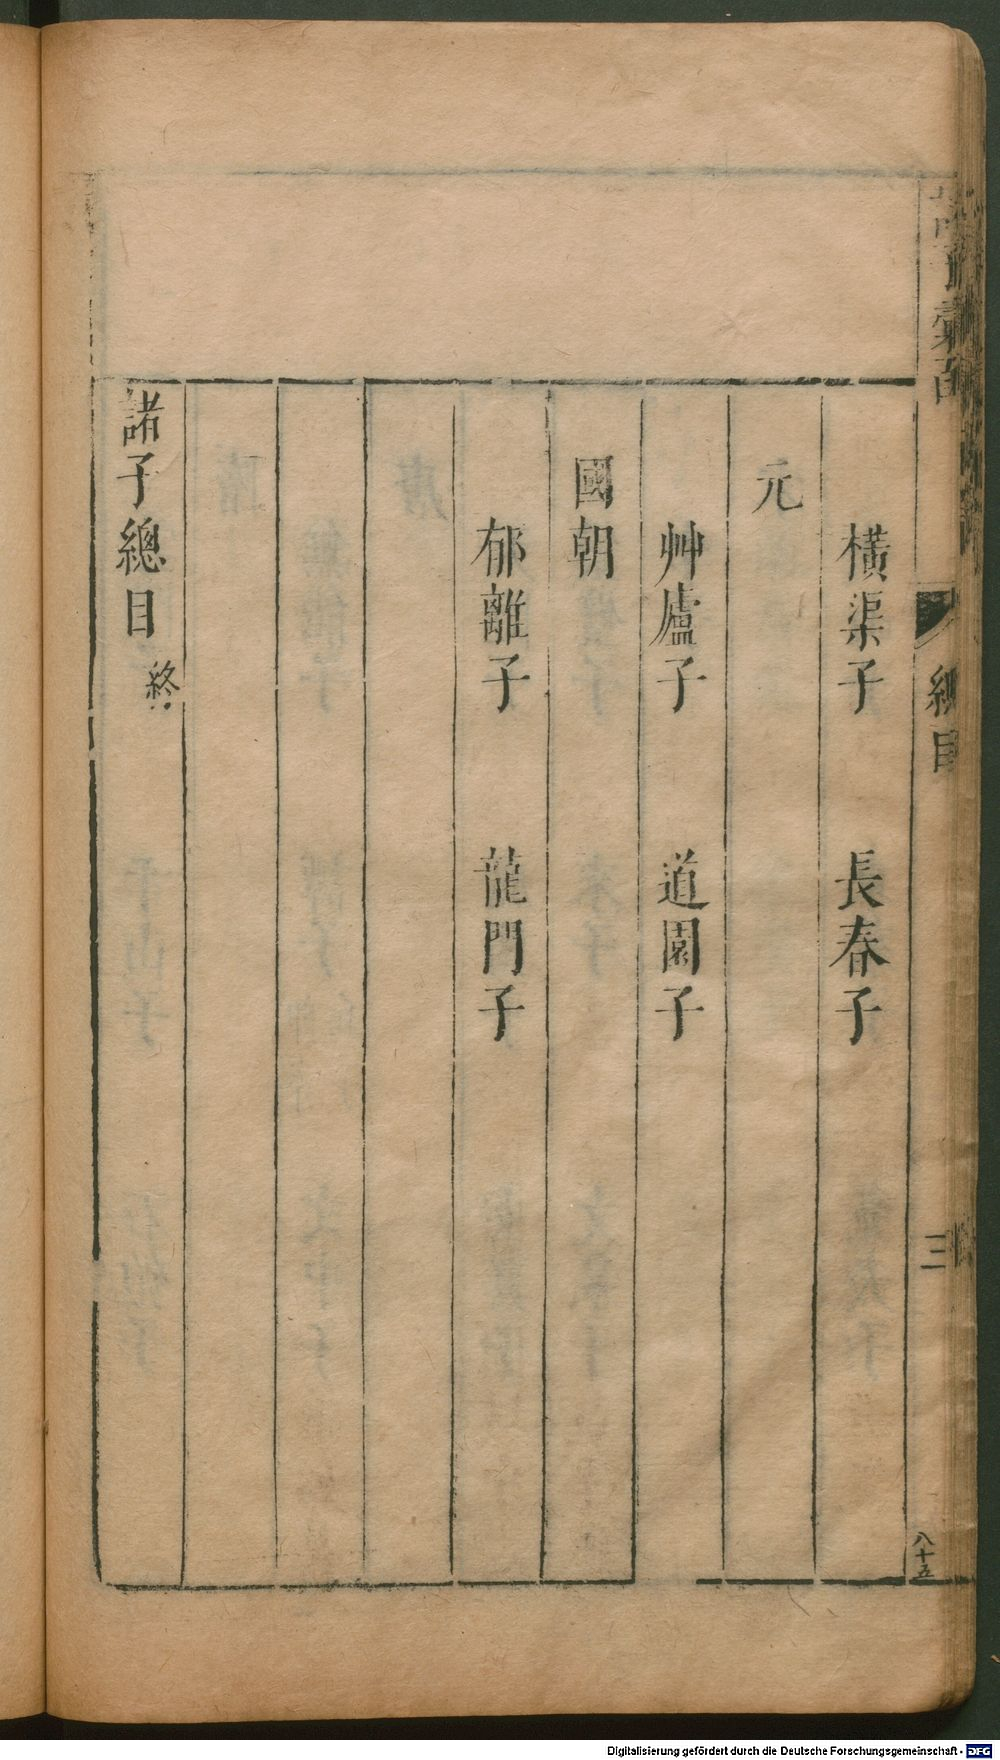 橫渠子 長春子
元
艸廬子 道園子
國朝
郁離子 龍門子
諸子總目 終
總目
三
八十五
Digitalisierung gefördert durch die Deutsche Forschungsgemeinschaft - DFG